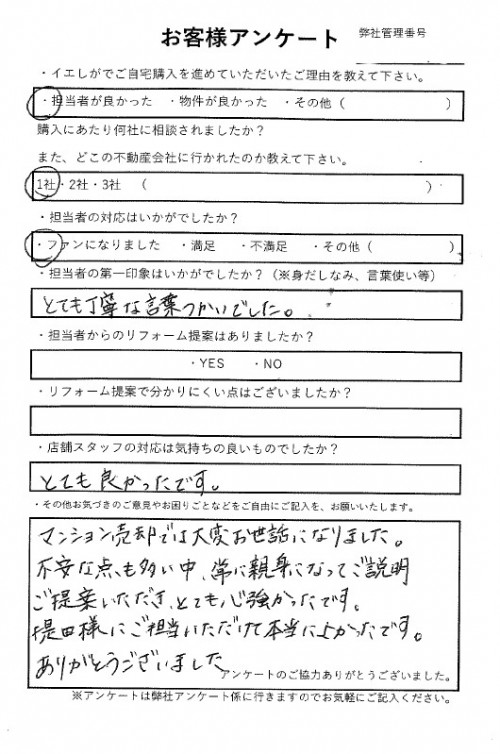 お客様アンケート
弊社管理番号
・イエしがでご自宅購入を進めていただいたご理由を教えて下さい。
・担当者が良かった ・物件が良かった ・その他（ ）
購入にあたり何社に相談されましたか？
また、どこの不動産会社に行かれたのか教えて下さい。
1社・2社・3社 （ ）
・担当者の対応はいかがでしたか？
・ファンになりました ・満足 ・不満足 ・その他（ ）
・担当者の第一印象はいかがでしたか？（※身だしなみ、言葉使い等）
とても丁寧な言葉つかいでした。
・担当者からのリフォーム提案はありましたか？
・YES ・NO
・リフォーム提案で分かりにくい点はございましたか？
・店舗スタッフの対応は気持ちの良いものでしたか？
とても良かったです。
・その他お気づきのご意見やお困りごとなどをご自由にご記入を、お願いいたします。
マンション売却では大変お世話になりました。
不安な点も多い中、常に親身になってご説明
ご提案いただき、とても心強かったです。
堤田様にご担当いただけて本当によかったです。
ありがとうございました
アンケートのご協力ありがとうございました。
※アンケートは弊社アンケート係に行きますのでお気軽にご記入ください。